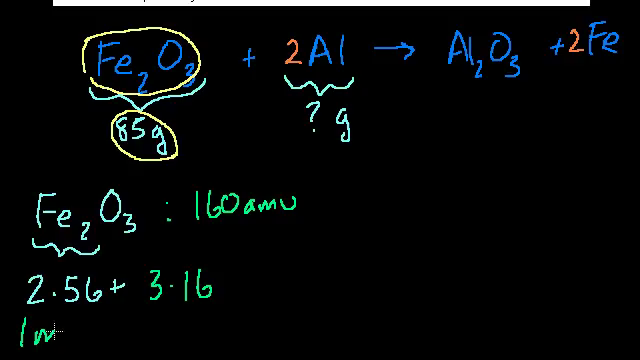 Fe₂O₃ + 2Al → Al₂O₃ + 2Fe
85g ? g
Fe₂O₃ : 160amu
2·56 + 3·16
1m